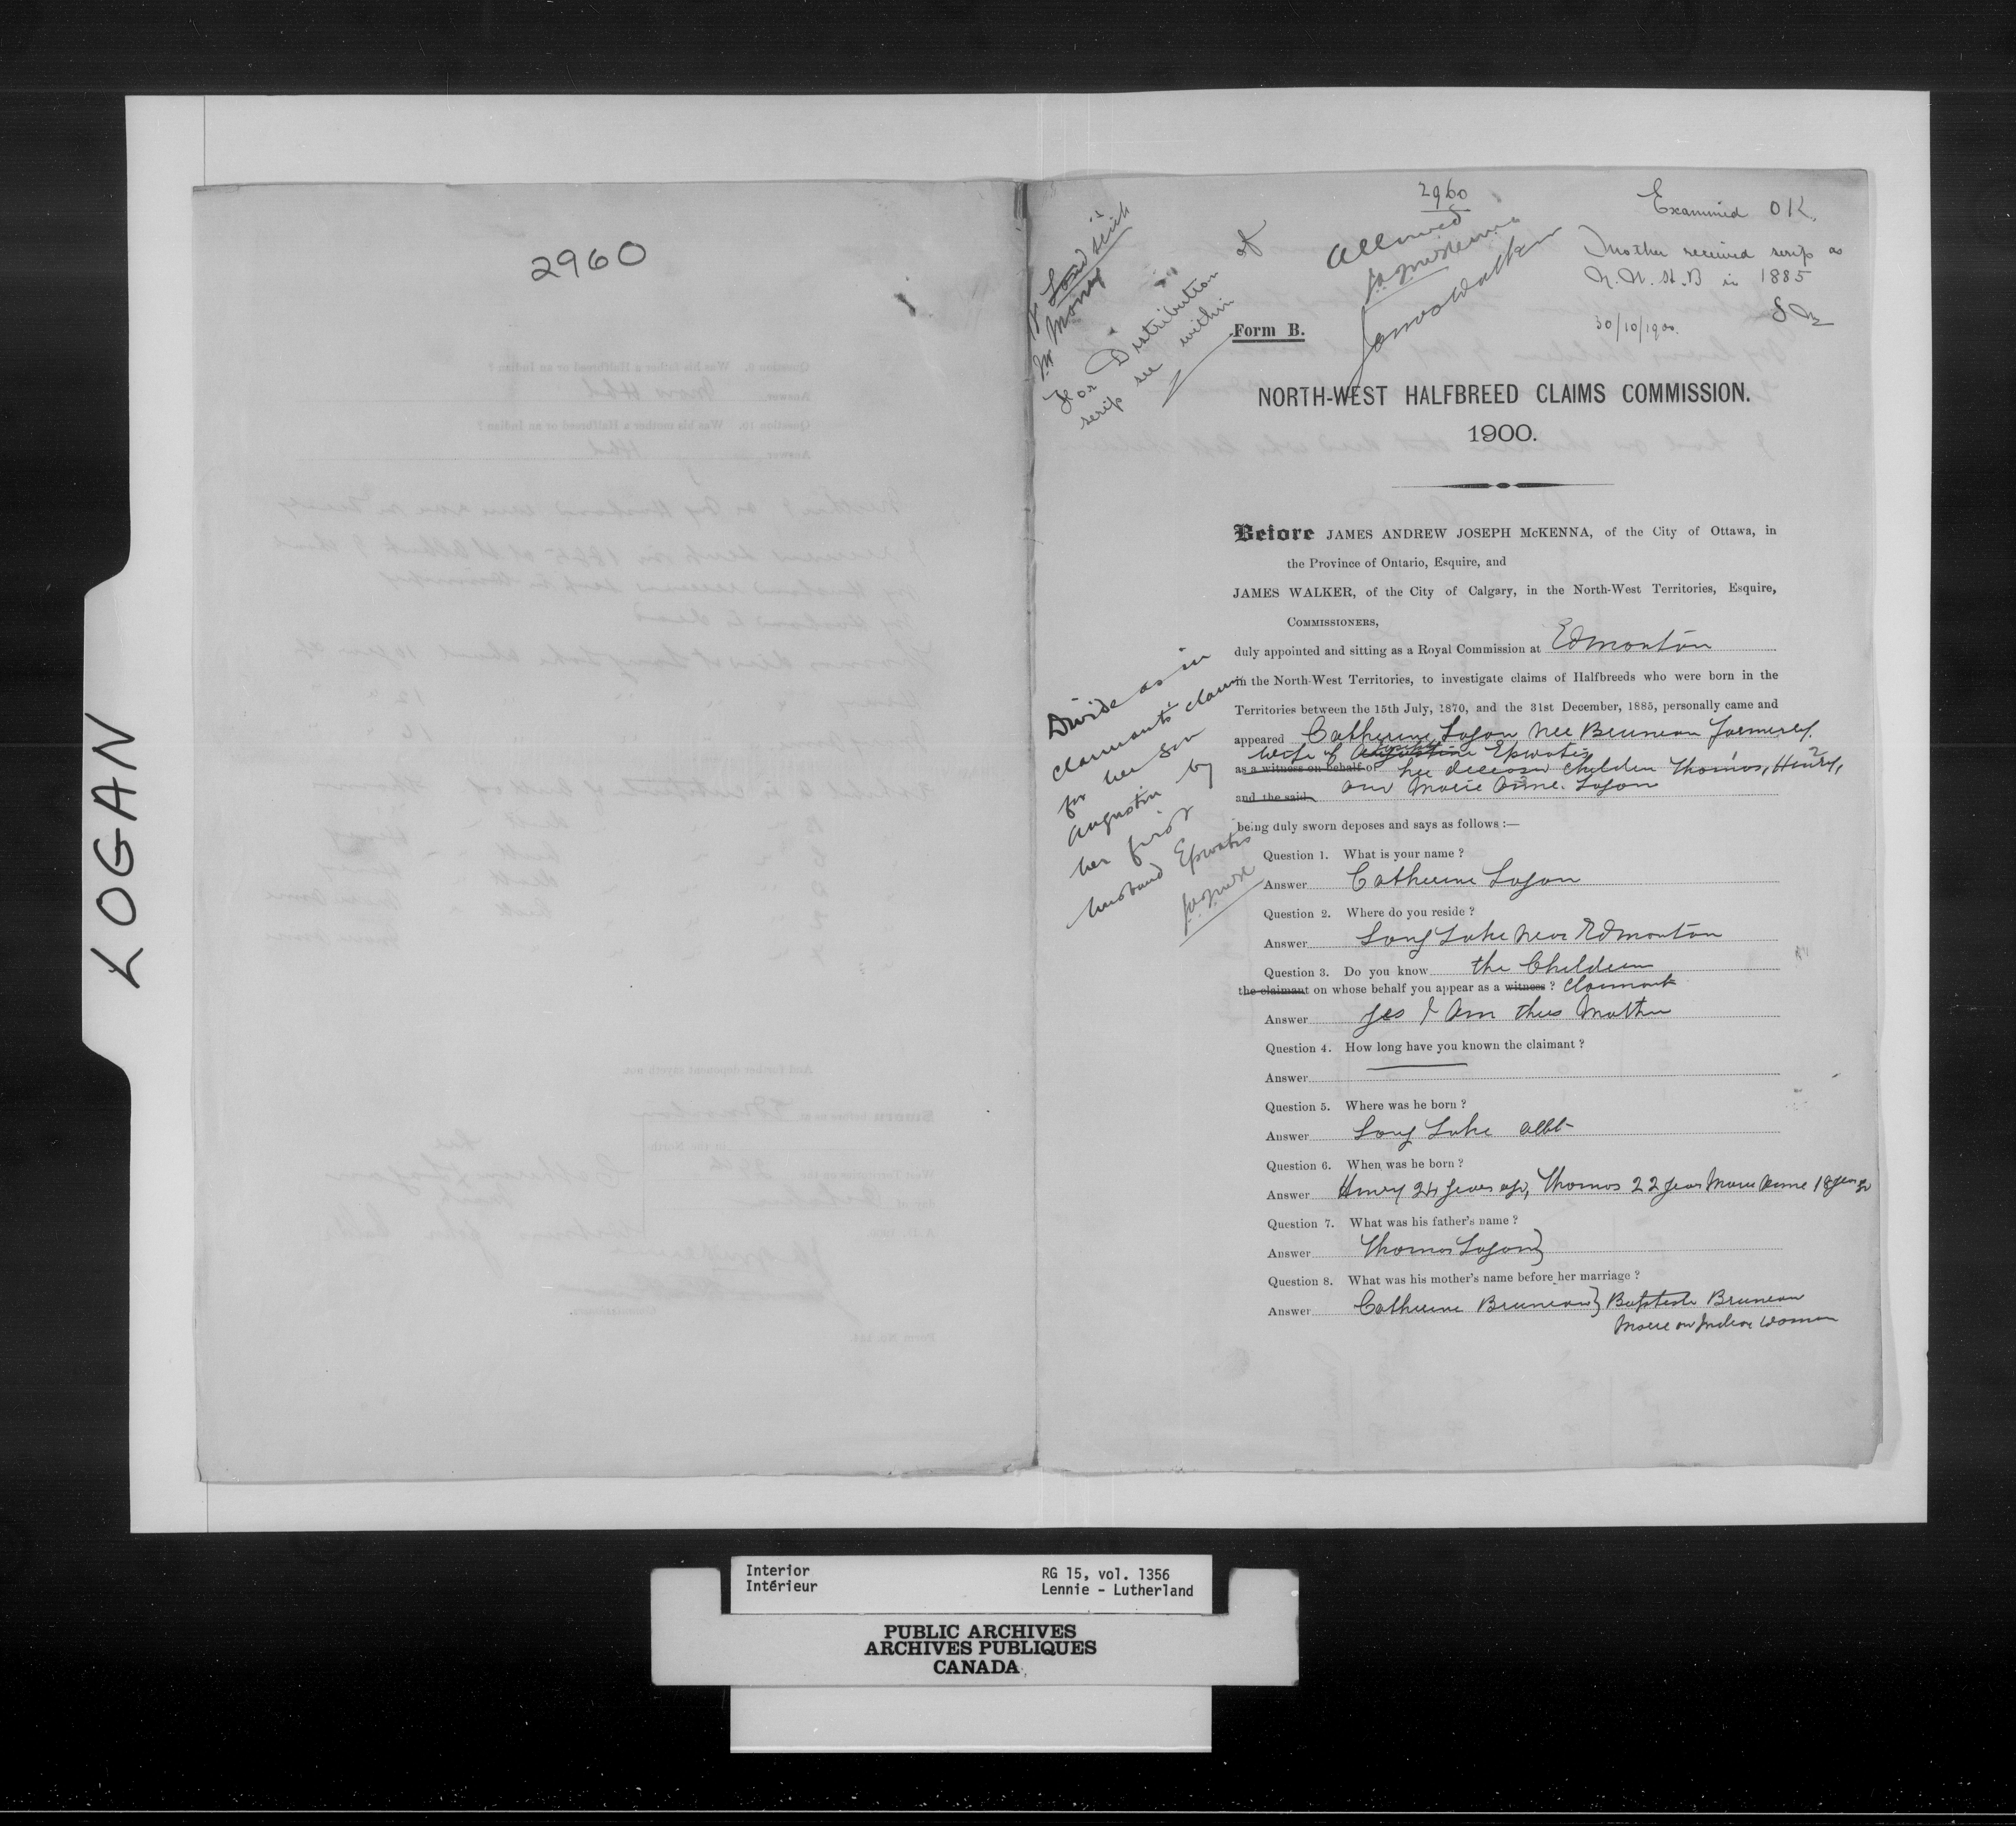 LOGAN
2960
2960
Allowed
J.A.J. McKenna
James Walker
Examined OK.
Mother received scrip as
N.W.H.B in 1885
30/10/1900.
Land scrip
Money
For Distribution of
scrip see within
Form B.
NORTH-WEST HALFBREED CLAIMS COMMISSION.
1900.
Before JAMES ANDREW JOSEPH McKENNA, of the City of Ottawa, in
the Province of Ontario, Esquire, and
JAMES WALKER, of the City of Calgary, in the North-West Territories, Esquire,
COMMISSIONERS,
duly appointed and sitting as a Royal Commission at Edmonton
in the North-West Territories, to investigate claims of Halfbreeds who were born in the
Territories between the 15th July, 1870, and the 31st December, 1885, personally came and
appeared Catherine Logan nee Bruneau formerly
wife of Epwatis
as a witness on behalf of her deceased Children Thomas, Henry,
and the said and Marie Anne Logan
being duly sworn deposes and says as follows :—
Divide as in
claimant's claim
for her son
Augustin by
her first
husband Epwatis
J.A.J. McK
Question 1. What is your name ?
Answer Catherine Logan
Question 2. Where do you reside ?
Answer Long Lake near Edmonton
Question 3. Do you know the Children
the claimant on whose behalf you appear as a witness ? Claimant
Answer Yes I am their Mother
Question 4. How long have you known the claimant ?
Answer
Question 5. Where was he born ?
Answer Long Lake Alb
Question 6. When was he born ?
Answer Henry 24 years ago, Thomas 22 years Marie Anne 18 years
Question 7. What was his father's name ?
Answer Thomas Logan }
Question 8. What was his mother's name before her marriage ?
Answer Catherine Bruneau } Baptiste Bruneau
Marie an Indian Woman
Interior
Intérieur
RG 15, vol. 1356
Lennie - Lutherland
PUBLIC ARCHIVES
ARCHIVES PUBLIQUES
CANADA